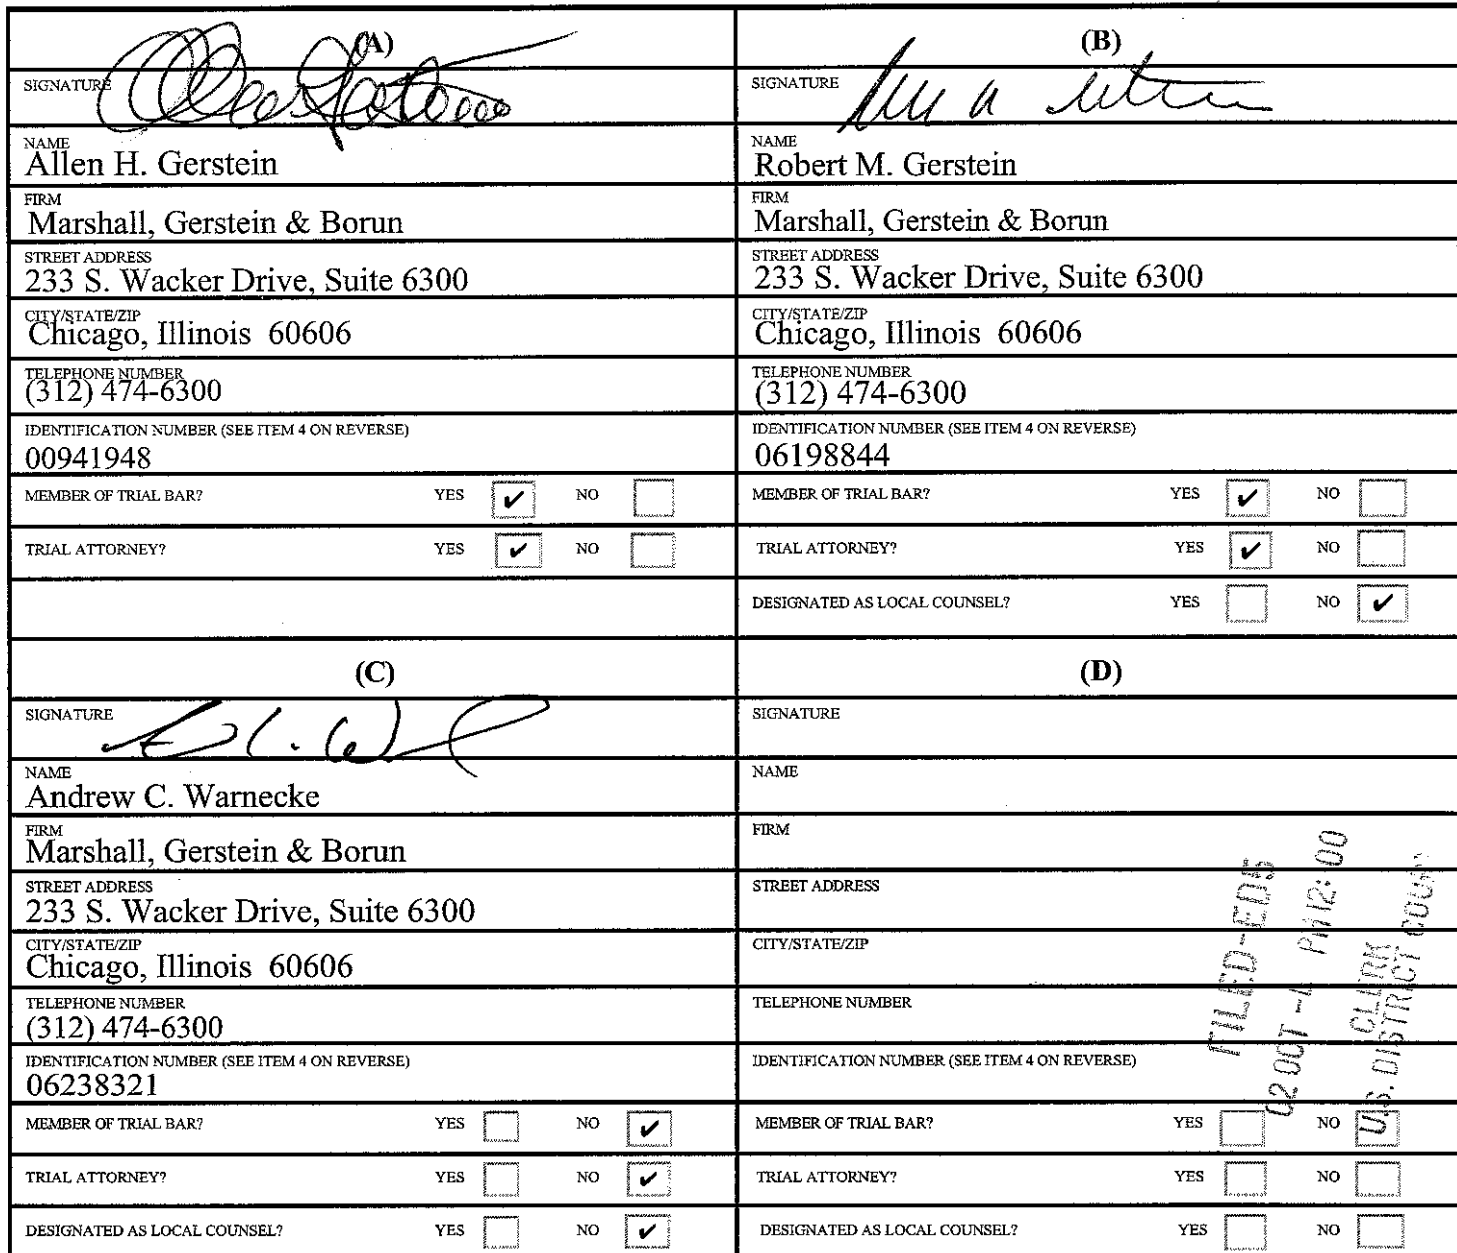 (A)
SIGNATURE
NAME
Allen H. Gerstein
FIRM
Marshall, Gerstein & Borun
STREET ADDRESS
233 S. Wacker Drive, Suite 6300
CITY/STATE/ZIP
Chicago, Illinois 60606
TELEPHONE NUMBER
(312) 474-6300
IDENTIFICATION NUMBER (SEE ITEM 4 ON REVERSE)
00941948
MEMBER OF TRIAL BAR? YES ✔ NO
TRIAL ATTORNEY? YES ✔ NO
(B)
SIGNATURE
NAME
Robert M. Gerstein
FIRM
Marshall, Gerstein & Borun
STREET ADDRESS
233 S. Wacker Drive, Suite 6300
CITY/STATE/ZIP
Chicago, Illinois 60606
TELEPHONE NUMBER
(312) 474-6300
IDENTIFICATION NUMBER (SEE ITEM 4 ON REVERSE)
06198844
MEMBER OF TRIAL BAR? YES ✔ NO
TRIAL ATTORNEY? YES ✔ NO
DESIGNATED AS LOCAL COUNSEL? YES NO ✔
(C)
SIGNATURE
NAME
Andrew C. Warnecke
FIRM
Marshall, Gerstein & Borun
STREET ADDRESS
233 S. Wacker Drive, Suite 6300
CITY/STATE/ZIP
Chicago, Illinois 60606
TELEPHONE NUMBER
(312) 474-6300
IDENTIFICATION NUMBER (SEE ITEM 4 ON REVERSE)
06238321
MEMBER OF TRIAL BAR? YES NO ✔
TRIAL ATTORNEY? YES NO ✔
DESIGNATED AS LOCAL COUNSEL? YES NO ✔
(D)
SIGNATURE
NAME
FIRM
STREET ADDRESS
CITY/STATE/ZIP
TELEPHONE NUMBER
IDENTIFICATION NUMBER (SEE ITEM 4 ON REVERSE)
MEMBER OF TRIAL BAR? YES NO
TRIAL ATTORNEY? YES NO
DESIGNATED AS LOCAL COUNSEL? YES NO
FILED-ED5
02 OCT -4 PM 12:00
CLERK
U.S. DISTRICT COURT